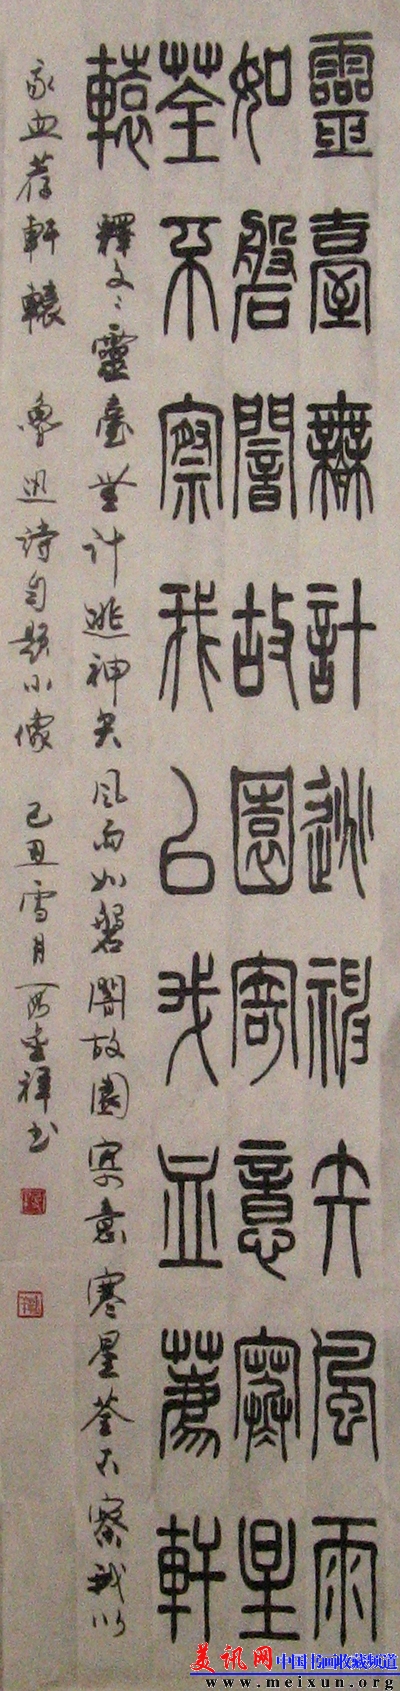 靈臺無計逃神矢風雨
如磐闇故園寄意寒星
荃不察我以我血薦軒
轅
釋文：靈臺無計逃神矢風雨如磐闇故園寄意寒星荃不察我以
我血荐軒轅 魯迅詩自題小像 己丑雪月
祥书
美讯网中国书画收藏频道
www.meixun.org